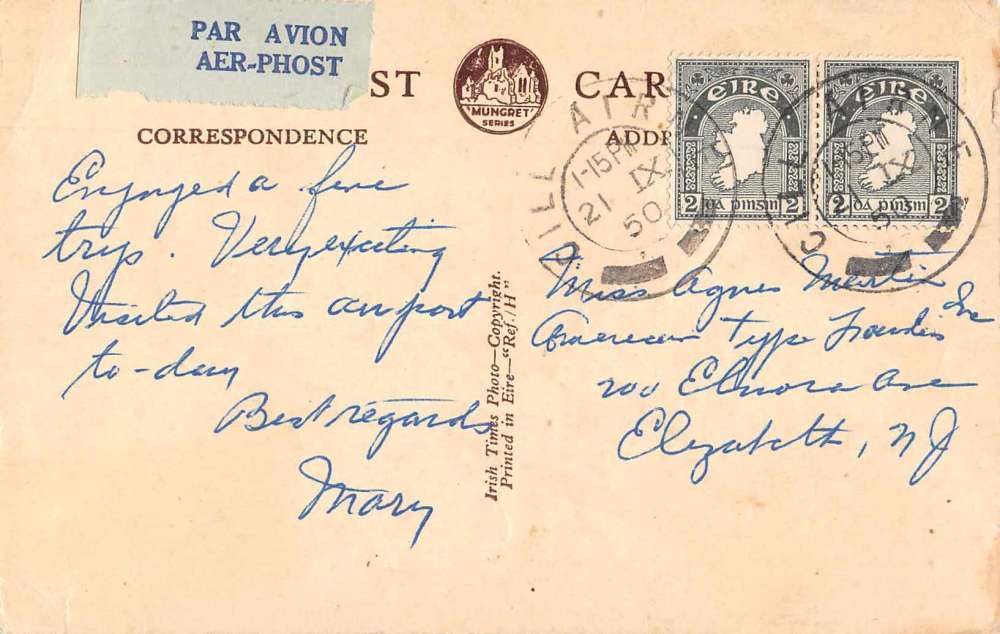 PAR AVION
AER-PHOST
ST CAR
"MUNGRET"
SERIES
CORRESPONDENCE
ADDR
EIRE
2 DA PINGIN 2
EIRE
2 DA PINGIN 2
CILL AIRNE
1-15PM
21 IX
50
CILL AIRNE
15PM
IX
50
Enjoyed a fine
trip. Very exciting
Visited this airport
to-day
Best regards
Mary
Irish Times Photo—Copyright.
Printed in Eire—"Ref./H"
Miss Agnes Martin
American Type Founders Inc
200 Elmora Ave
Elizabeth, NJ